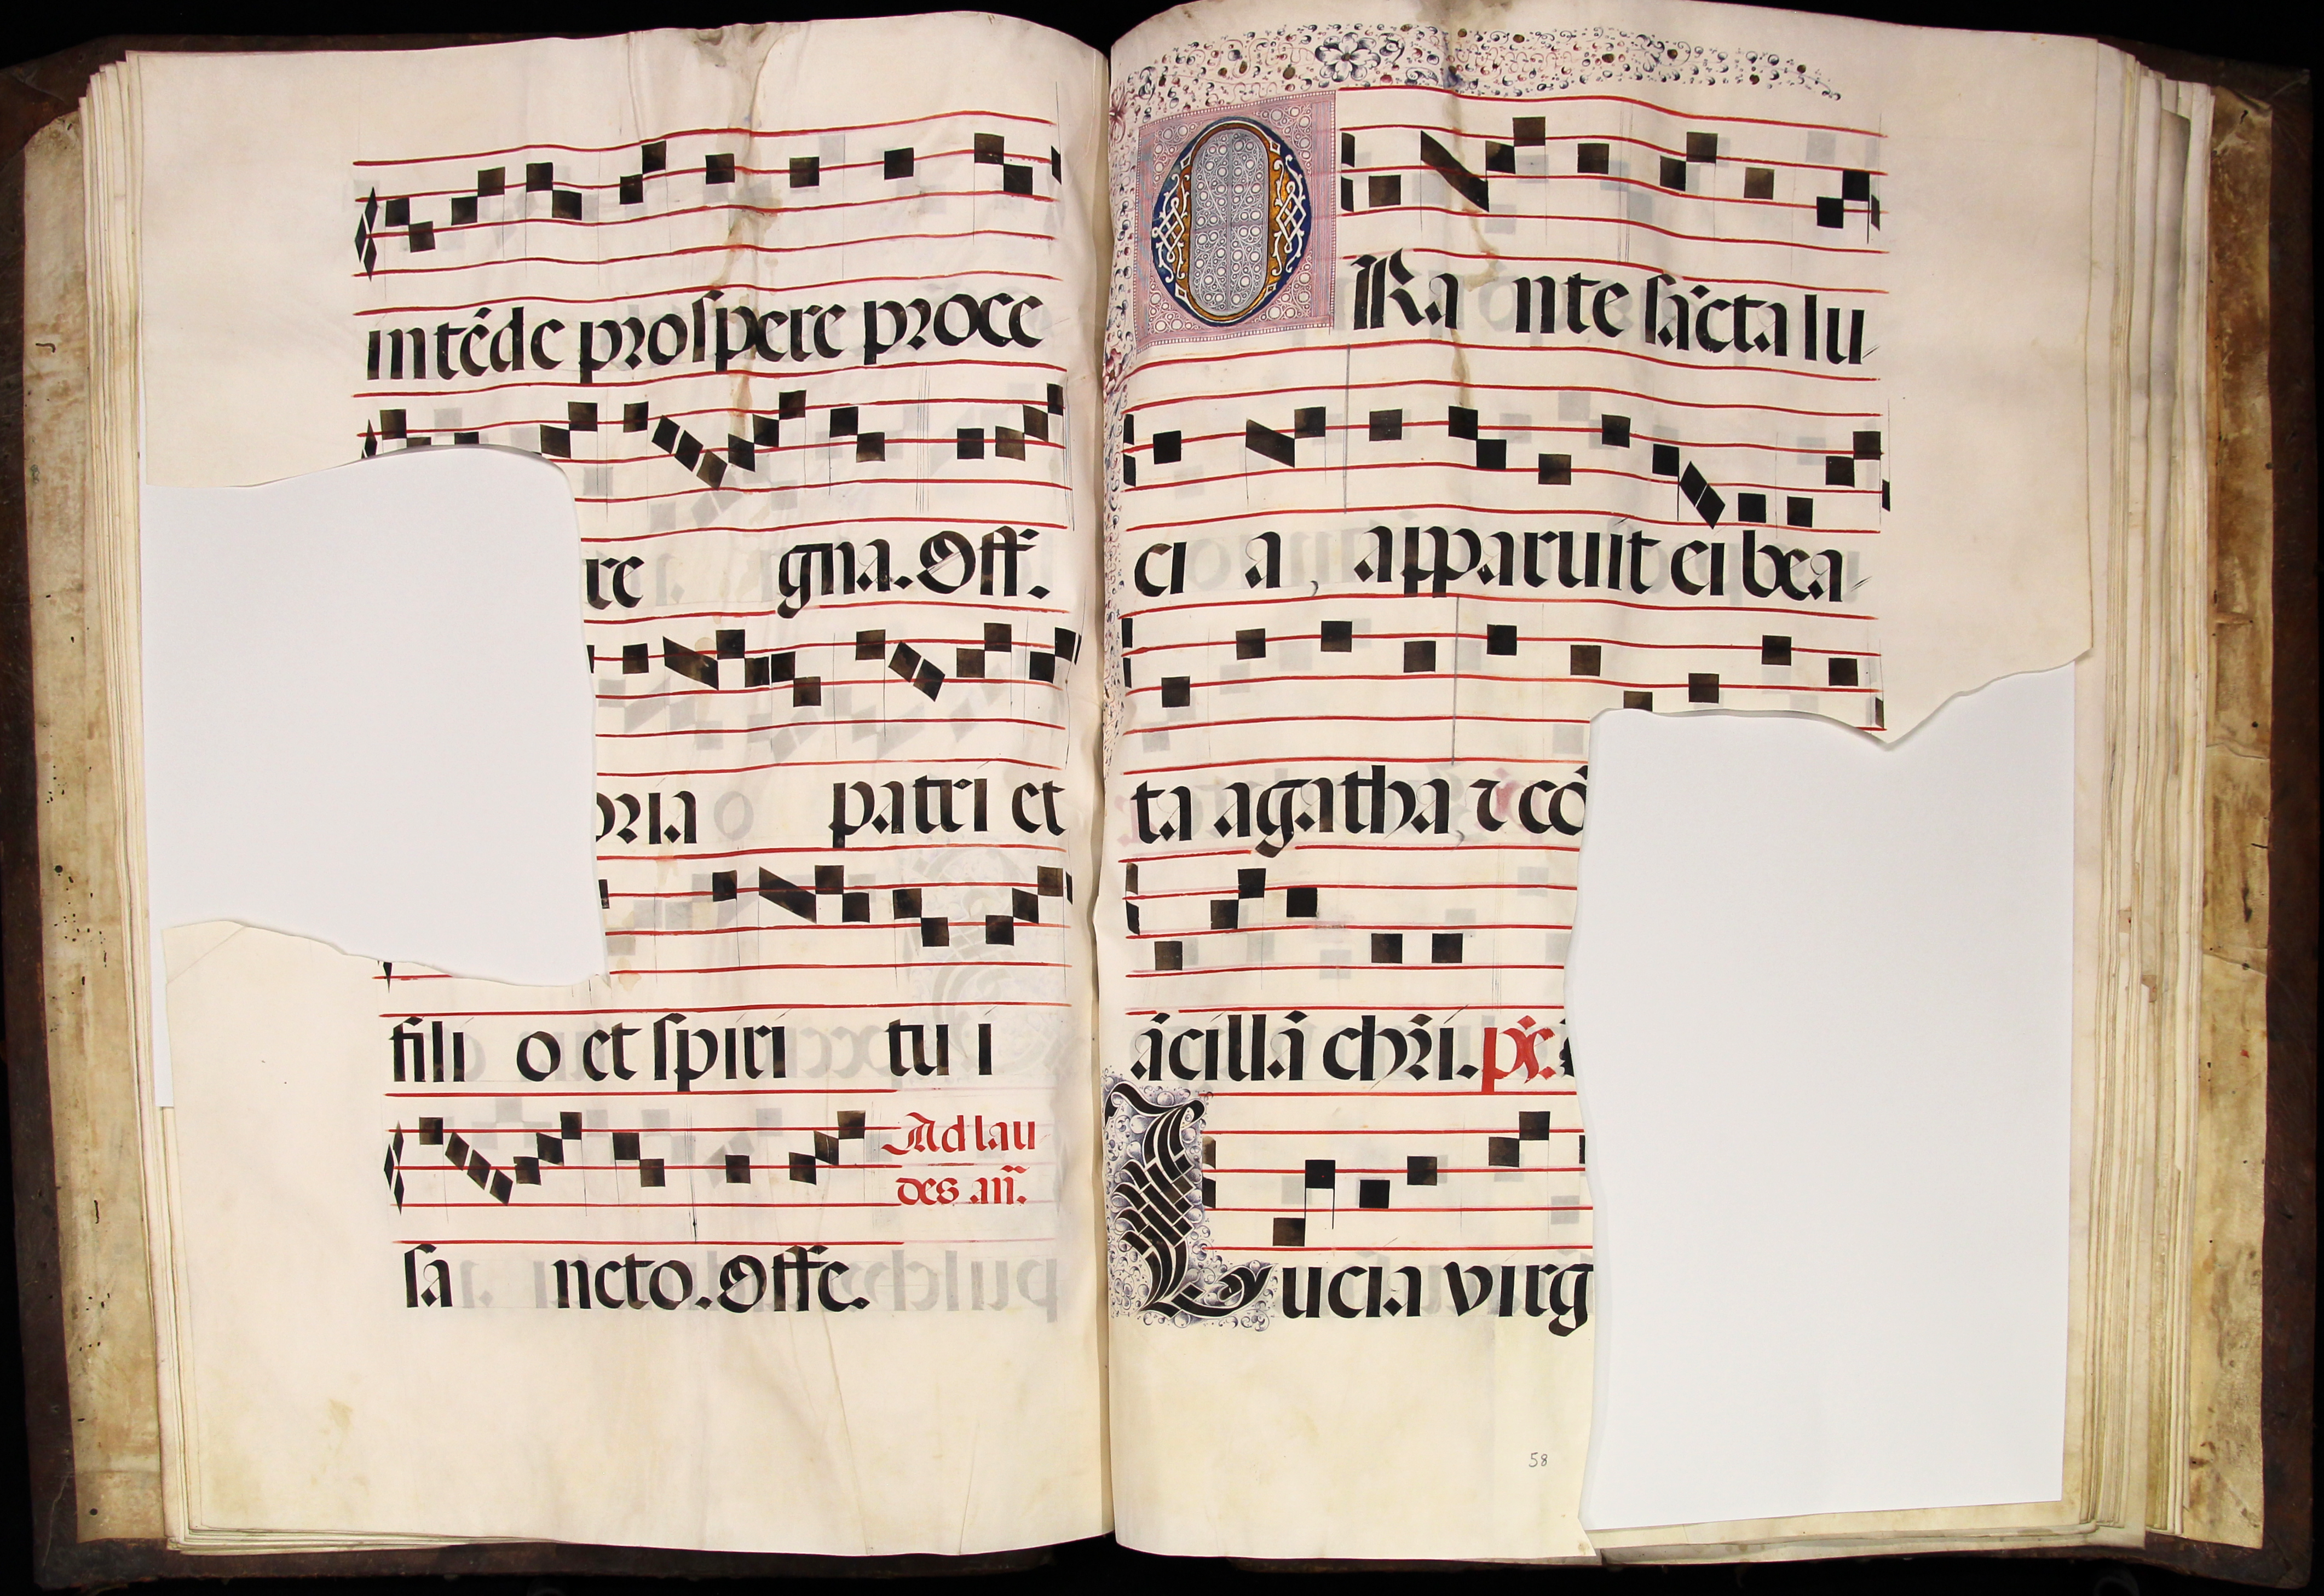 intēde prospere proce
re gna. Off.
oria patri et
fili o et spiri tu i
Ad lau
des añ.
sa ncto. Offe.
ORa nte sācta lu
ci a, apparuit ei bea
ta agatha, ⁊ cō
ācillā chr̄i. ps̄.
Lucia virg
58